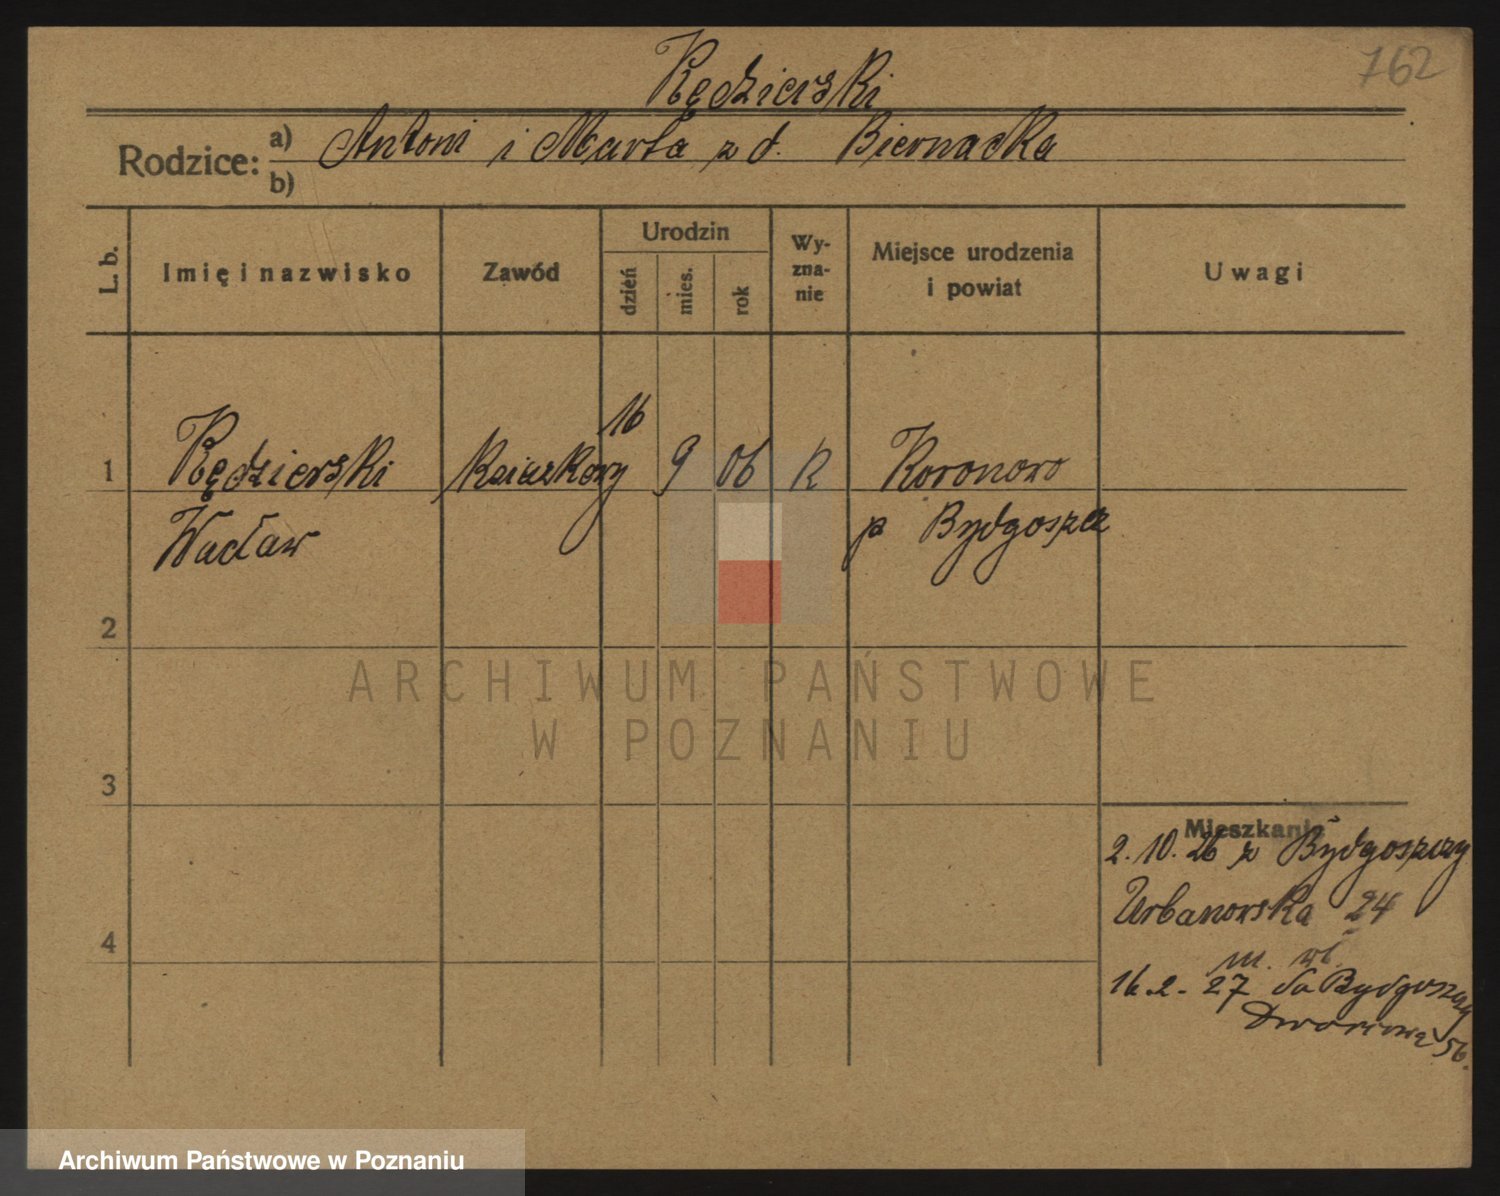 762
Kędzierski
Rodzice: a) Antoni i Marta z d. Biernacka
b)
L. b.
Imię i nazwisko
Zawód
Urodzin
dzień
mies.
rok
Wy-
zna-
nie
Miejsce urodzenia
i powiat
Uwagi
1 Kędzierski 16 9 06 K Koronowo
Wacław p Bydgoszcz
2
3
4
Mieszkanie
2.10.26 z Bydgoszczy
Urbanowska 24
m. wł.
16.2.27 do Bydgoszczy
Dworcowa 56.
ARCHIWUM PAŃSTWOWE
W POZNANIU
Archiwum Państwowe w Poznaniu